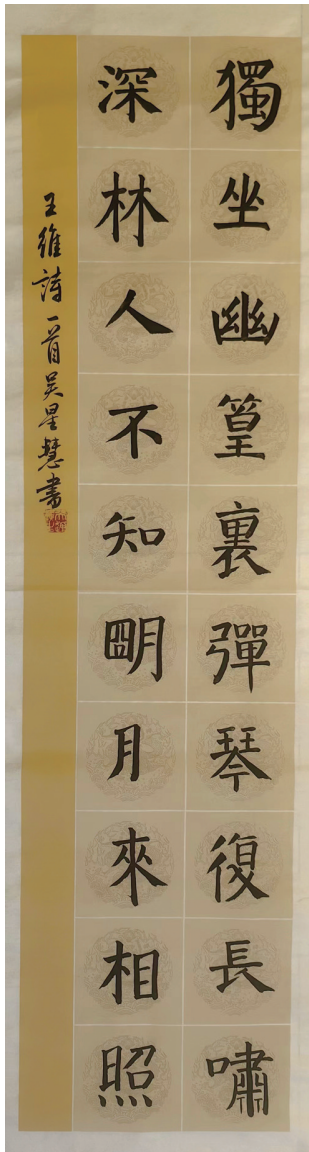 獨坐幽篁裏彈琴復長嘯
深林人不知明月來相照
王維詩一首吴星慧書